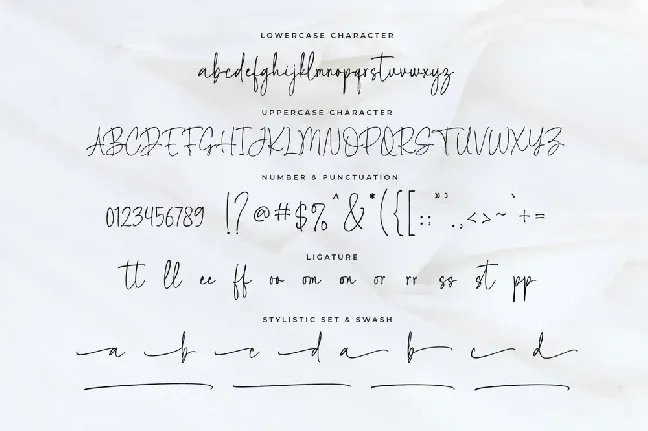 LOWERCASE CHARACTER
abcdefghijklmnopqrstuvwxyz
UPPERCASE CHARACTER
ABCDEFGHIJKLMNOPQRSTUVWXYZ
NUMBER & PUNCTUATION
0123456789 !?@#$%^&*({[:;"'.,<>~`÷=
LIGATURE
tt ll ee ff oo om on or rr ss st pp
STYLISTIC SET & SWASH
a b c d a b c d